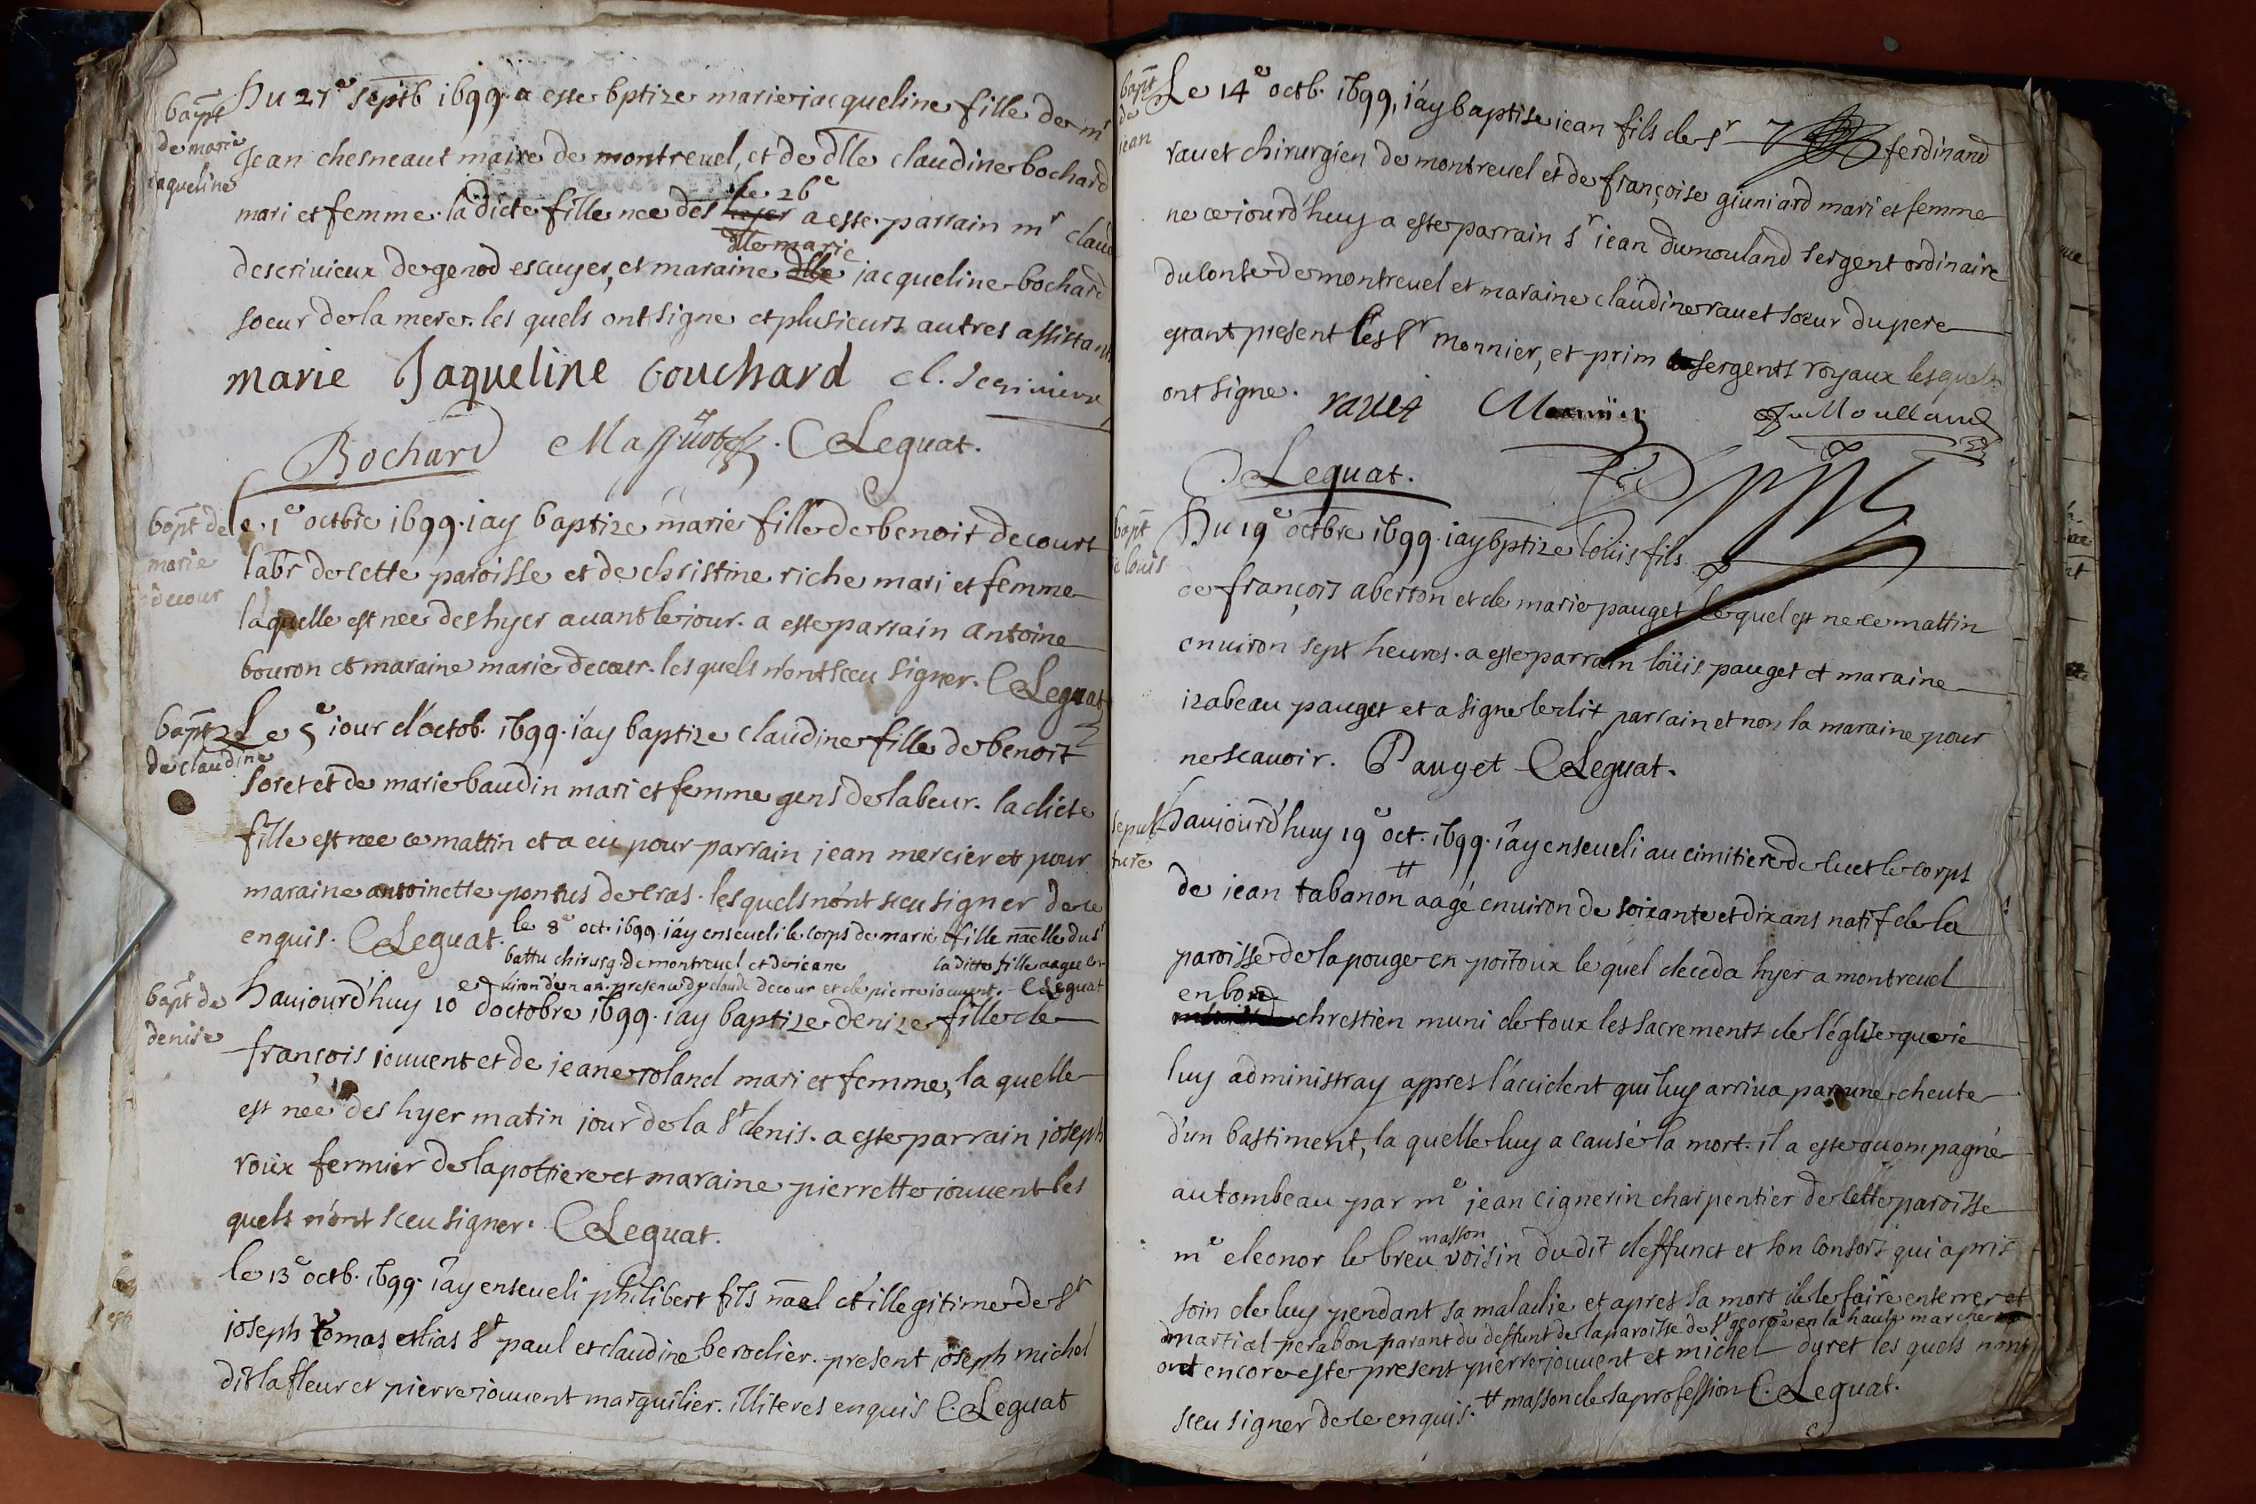 bapt
de marie
jaqueline
Du 27e septb 1699. a este bptize marie jacqueline fille de mr
Jean chesneaut maire de montrevel, et de dlle claudine bochard
mari et femme. la dicte fille nee des le 26e a este parrain mr claude
descrivieux de genod escuyer, et maraine dlle marie jacqueline bochard
soeur de la mere. les quels ont signe et plusieurs autres assistants
marie Jaqueline bouchard cl. scrivieux
Bochard Massüot C Leguat.
bapt de
marie
decour
le 1e octbre 1699. iay baptize marie fille de benoit decourt
labr de cette paroisse et de christine riche mari et femme
laquelle est nee des hyer avant le jour. a este parrain antoine
bouron et maraine marie decour. les quels n'ont sceu signer. C Leguat
bapt
de claudine
Le 5e iour d'octob. 1699. i'ay baptize claudine fille de benoit
soret et de marie baudin mari et femme gens de labeur. la dicte
fille est nee ce mattin et a eu pour parrain jean mercier et pour
maraine antoinette pontus de cras. les quels n'ont sceu signer de ce
enquis. C Leguat.
le 8e oct. 1699. i'ay enseveli le corps de marie fille naelle du sr
battu chirurg. de montrevel et de jeane la ditte fille aagee en-
viron d'un an. presence de claude decour et de pierre jouvent. C Leguat
bapt de
denise
Daujourd'huy 10e d'octobre 1699. iay baptize denize fille de
françois jouvent et de jeane roland mari et femme, la quelle
est née des hyer matin jour de la st denis. a este parrain joseph
roux fermier de la pottiere et maraine pierrette jouvent les
quels n'ont sceu signer. C Leguat.
le 13e octb. 1699. i'ay enseveli philibert fils nael et illegitime de sr
joseph tomas st paul et claudine berodier. present joseph michel
dit la fleur et pierre jouvent marguilier. illiteres enquis C. Leguat
bapt
de
jean
Le 14e octb. 1699, i'ay baptise jean fils de sr ferdinand
ravet chirurgien de montrevel et de françoise giuniard mari et femme
ne ce jourd'huy a este parrain sr jean dumouland sergent ordinaire
du conte de montrevel et maraine claudine ravet soeur du pere
estant present les sr monnier, et prim sergents royaux lesquels
ont signe. ravet Monnier Du Moulland
C Leguat.
bapt
de louis
Du 19e octbre 1699. iay bptize loüis fils
de françois aberton et de marie pauget lequel est ne ce mattin
environ sept heures. a este parrain loüis pauget et maraine
izabeau pauget et a signe le dit parrain et non la maraine pour
ne scavoir. Pauget C Leguat.
sepul
ture
Daujourd'huy 19e oct. 1699. i'ay enseveli au cimitiere de cuet le corps
de jean tabanon # aagé environ de soixante et dix ans natif de la
paroisse de la pouge en poitoux le quel deceda hyer a montrevel
en bon chrestien muni de toux les sacrements de l'église que ie
luy administray appres l'accident qui luy arriva par une cheute
d'un bastiment, la quelle luy a causé la mort. il a este acompagné
au tombeau par me jean cignerin charpentier de cette paroisse
me eleonor le breu masson voisin du dit deffunct et son consors qui a pris
soin de luy pendant sa maladie et apres sa mort de le faire enterrer et
martial perabon parant du deffunt de la paroisse de st george en la haute marche
ont encore este present pierre jouvent et michel duret les quels n'ont
sceu signer de ce enquis. # masson de sa profession C. Leguat.